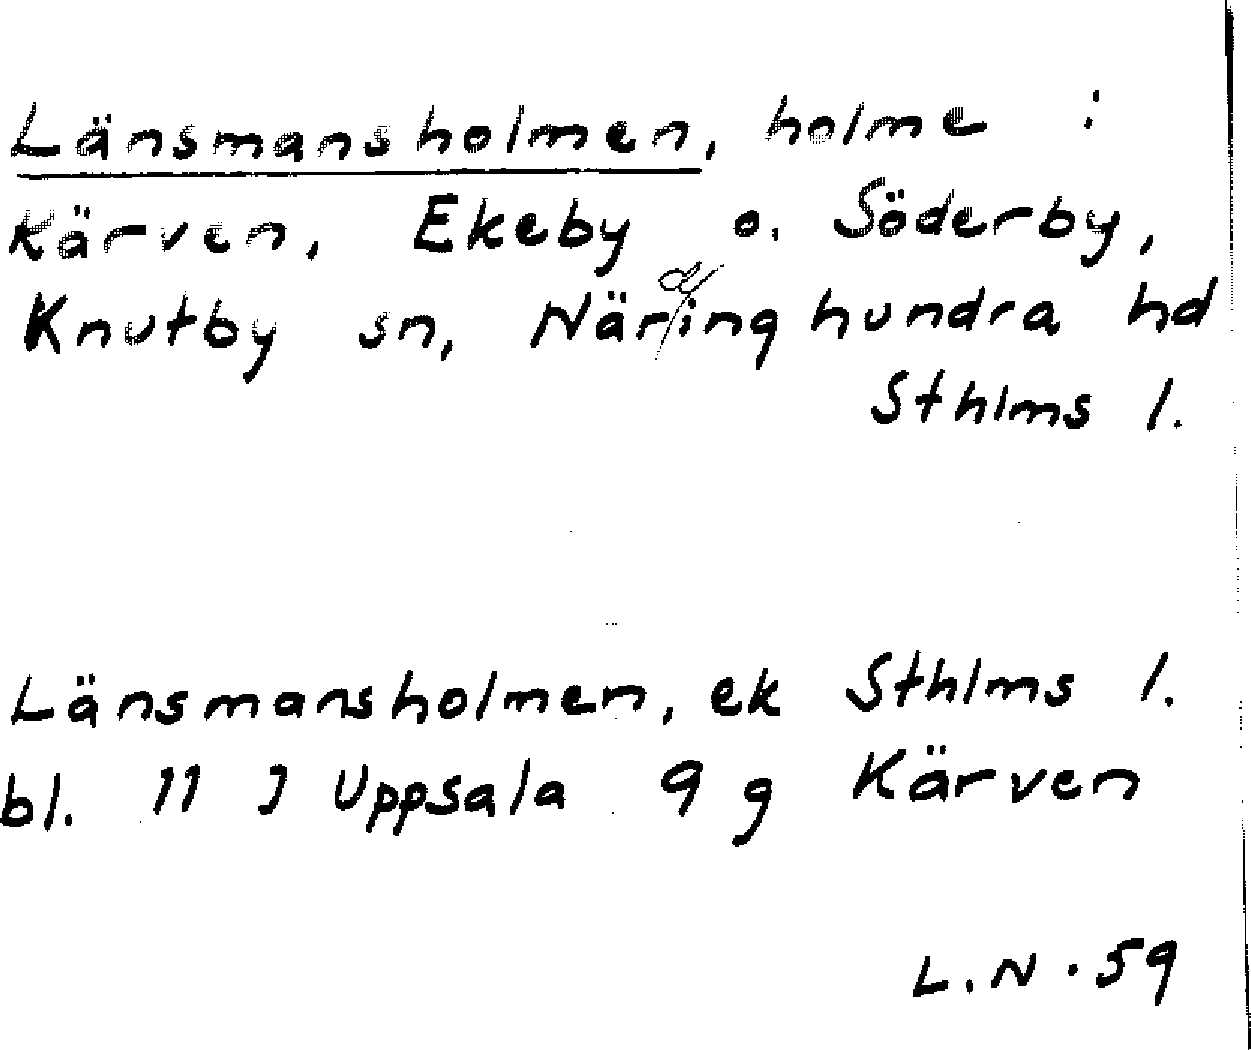 Länsmansholmen, holme i
Kärven, Ekeby o. Söderby,
Knutby sn, Närdinghundra hd
Sthlms l.
Länsmansholmen, ek Sthlms l.
bl. 11 J Uppsala 9 g Kärven
L.N. 59